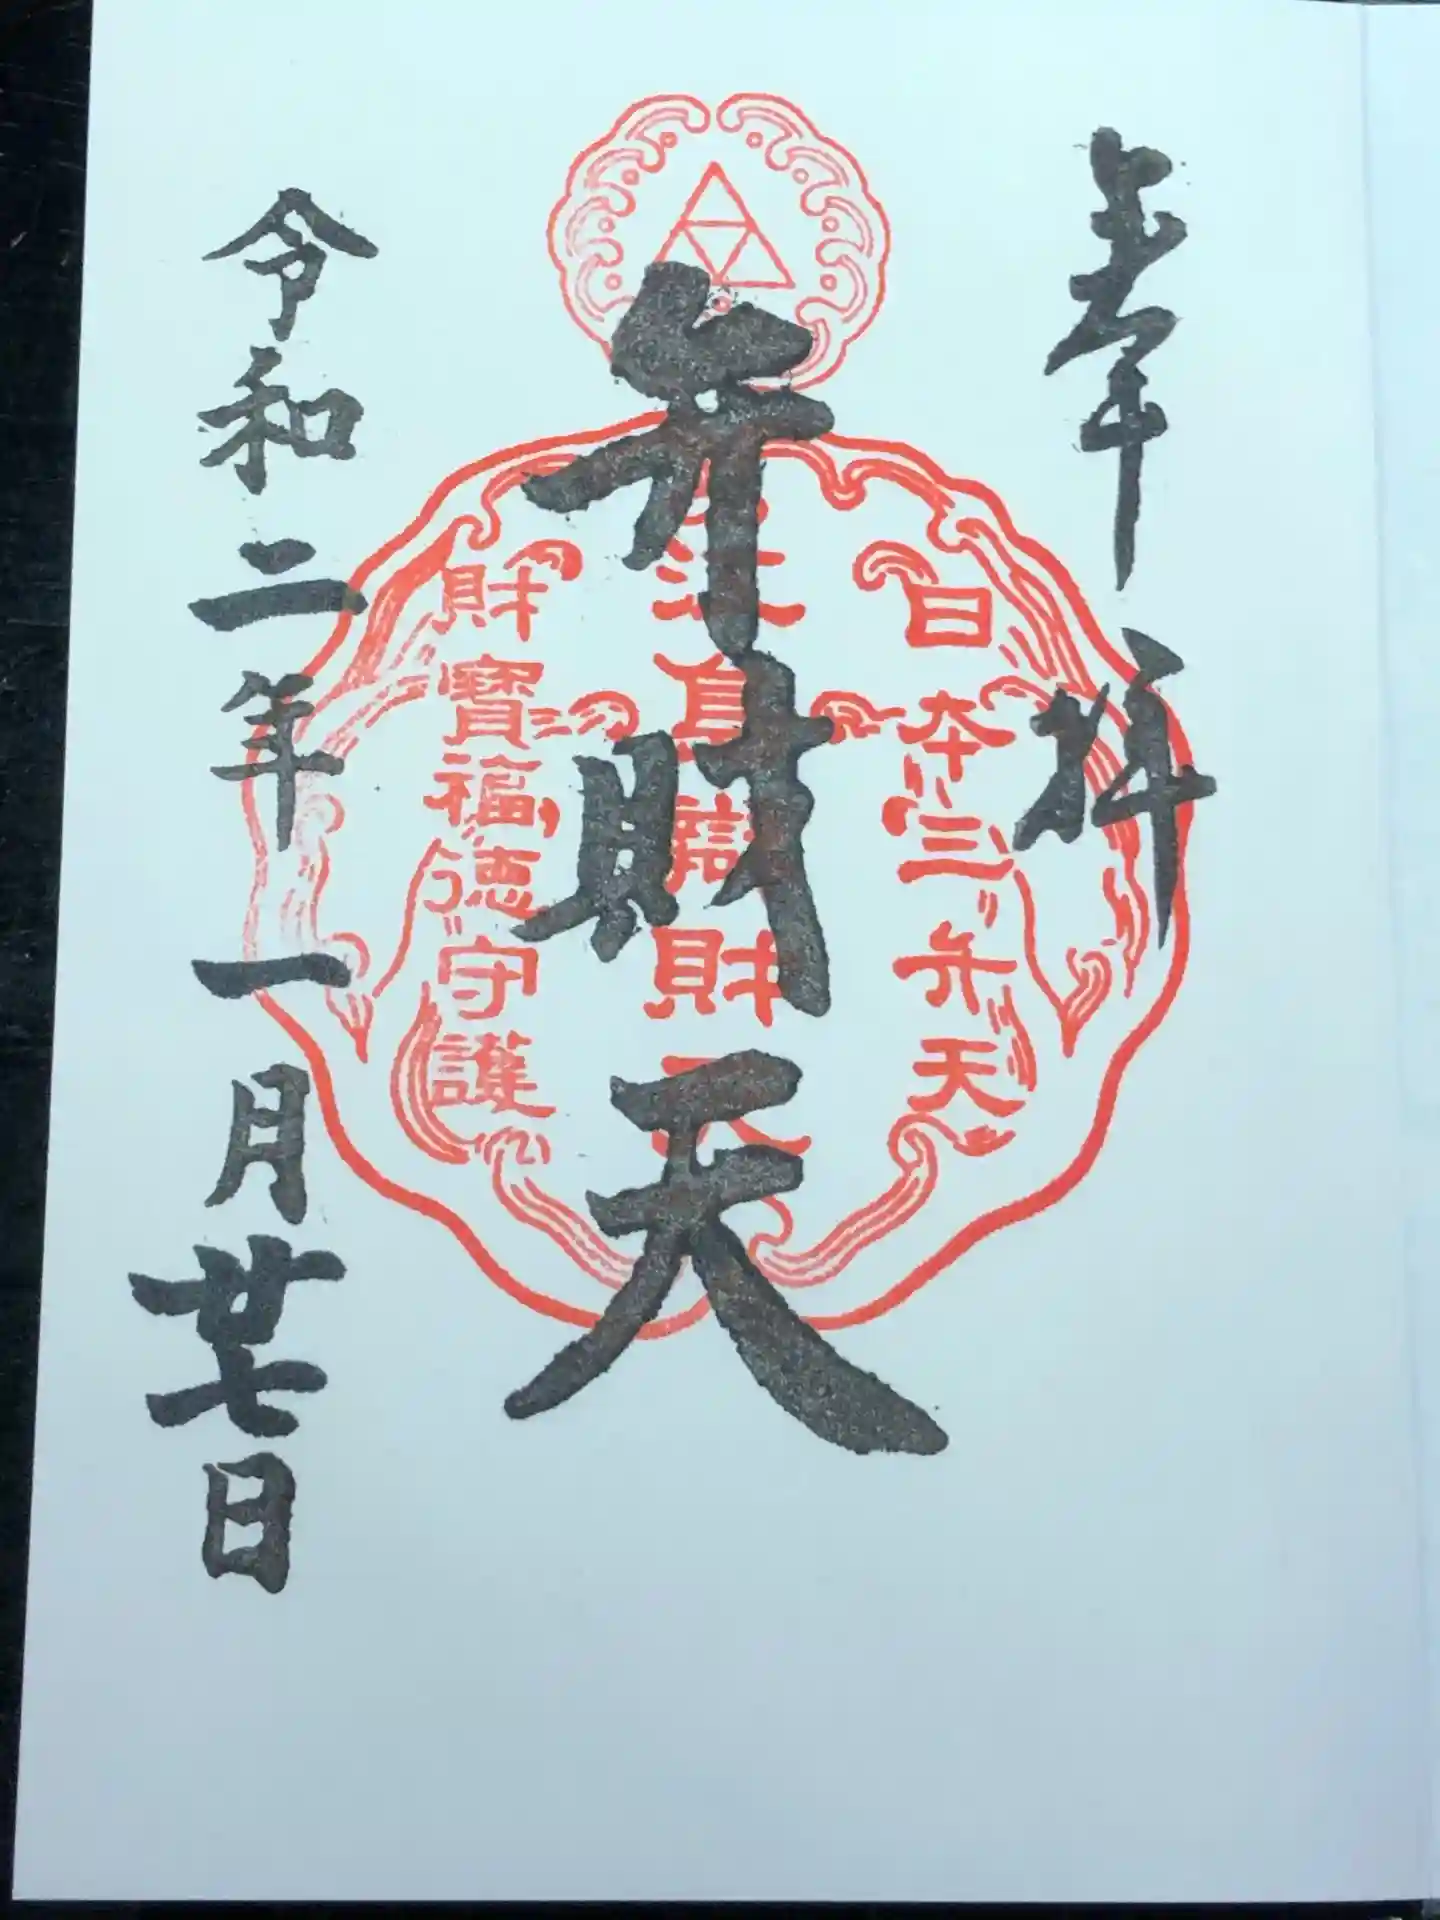 奉拝
日本三弁天
弁財天
江島辯財天
財寶福徳守護
令和二年一月廿七日